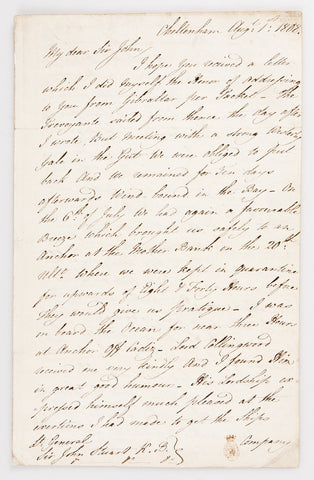 Cheltenham Augt. 1st. 1808.
My dear Sir John,
I hope you received a letter
which I did myself the Honor of addressing
to You from Gibraltar per Packet – The
Proveyante sailed from thence the day after
I wrote, But meeting with a strong Westerly
Gale in the Gut We were obliged to put
back And We remained for Ten days
afterwards Wind-bound in the Bay – On
the 6th. of July We had again a favourable
Breeze which brought us safely to an
Anchor at the Mother Bank on the 20th.
Ulto. where we were kept in quarantine
for upwards of Eight & Forty Hours before
They would give us pratique – I was
on board the Ocean for near three Hours
at Anchor Off Cadiz – Lord Collingwood
received me very kindly And I found Him
in great good humour – His Lordship ex-
pressed himself much pleased at the
exertions I had made to get the Ships
Company
Lt. General
Sir John Stuart K.B.